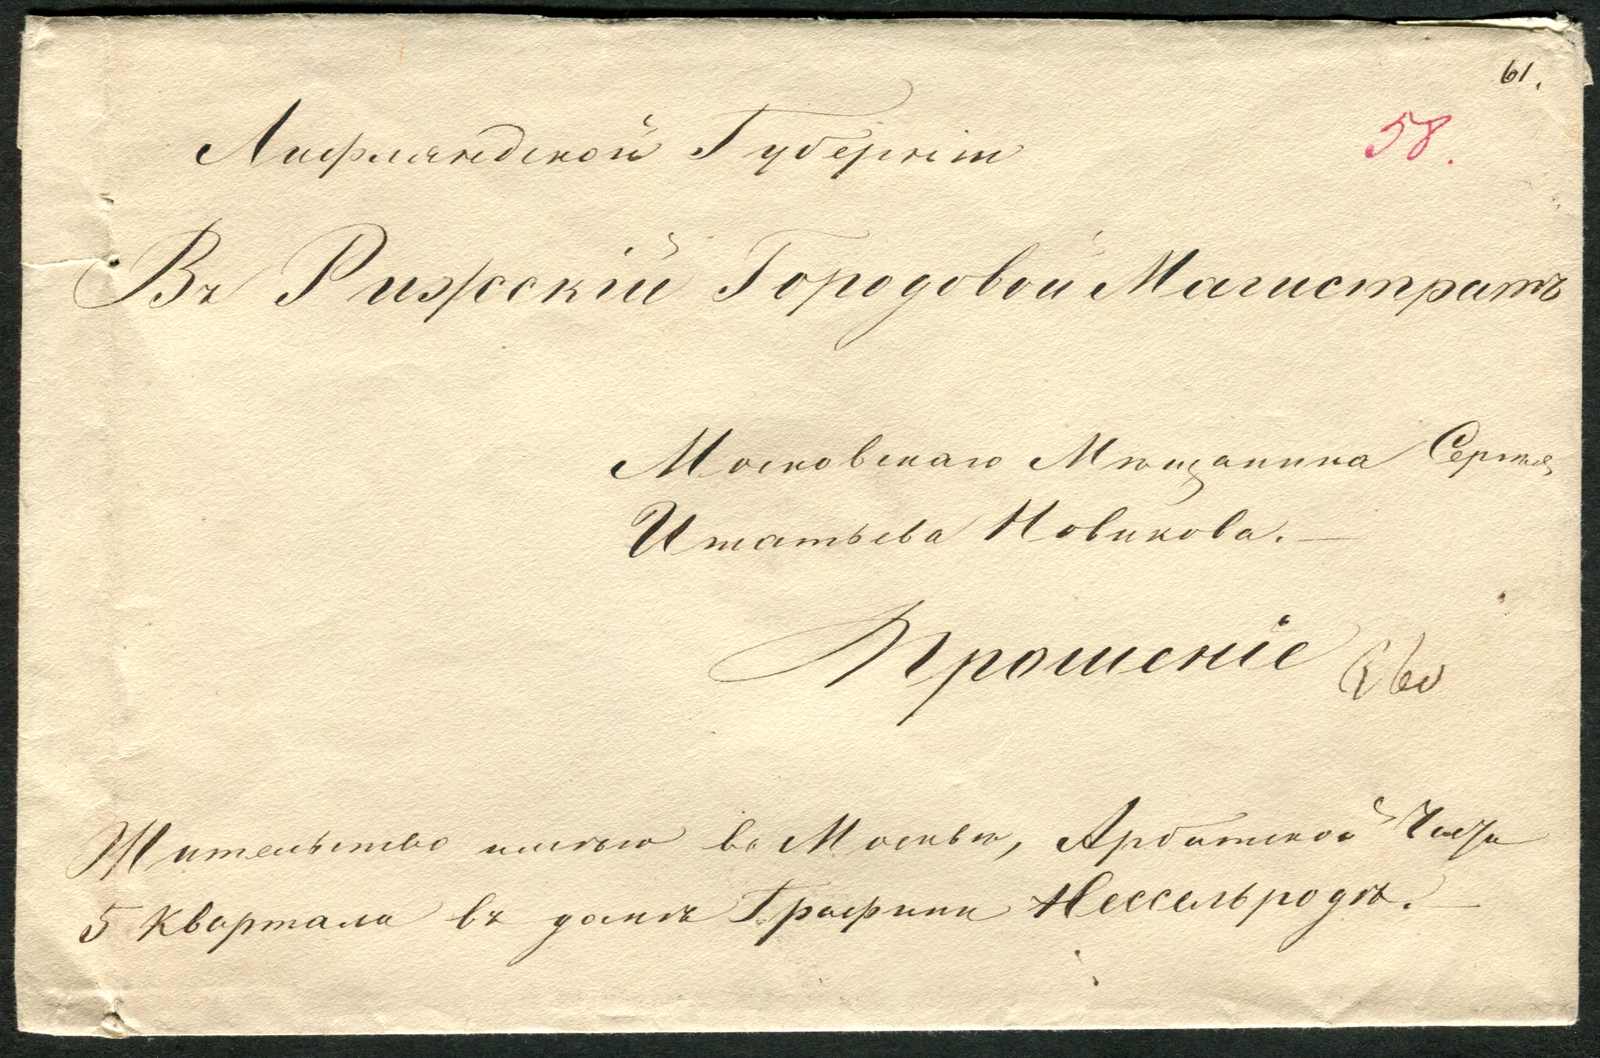 61.
58.
Лифляндской Губерніи
Въ Рижскій Городовой Магистратъ
Московскаго Мѣщанина Сергѣя
Игнатьева Новикова. —
Прошеніе
Жительство имѣю въ Москвѣ, Арбатской Части
5 Квартала въ домѣ Графини Нессельроде. —